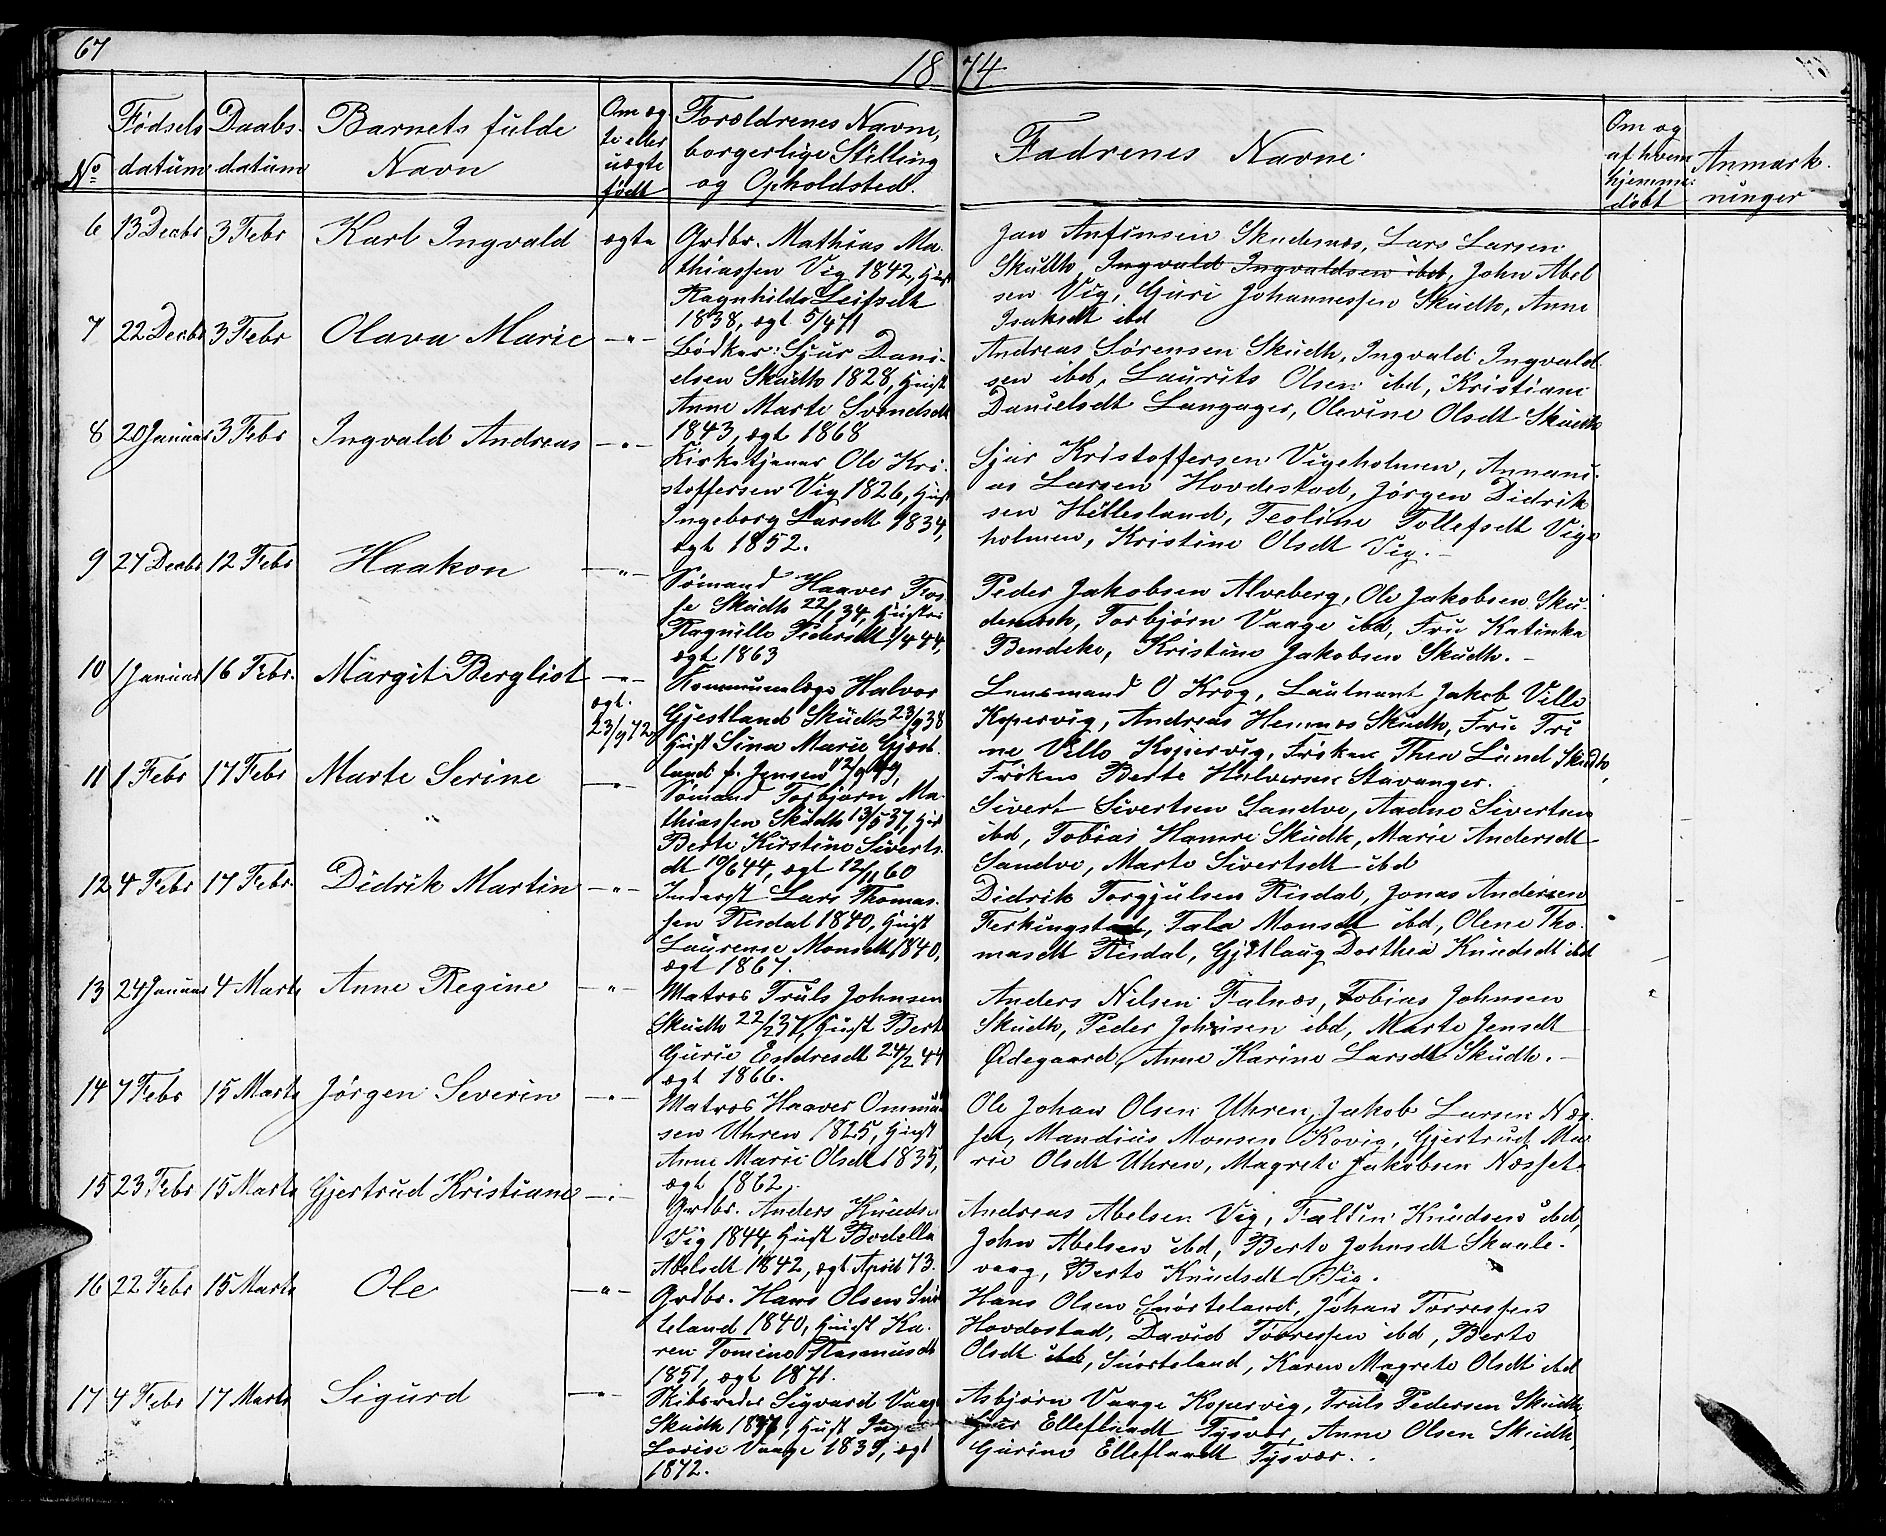 67
1874
No
Fødsels datum
Daabs datum
Barnets fulde Navn
Om æg te eller uægte født
Forældrenes Navne, borgerlige Stilling og Opholdsted.
Fadrenes Navne
Om og af hvem hjemme døbt
Anmærk ninger
6 13 Decbr 3 Febr Karl Ingvald ægte
Grdbr. Mathias Ma
thiassen Vig 1842, Hust
Ragnhilde Leifsdt
1838, ægt 5/4 71
Jan Anfinsen Skudesnæs, Lars Larsen
Skudh, Ingvald Ingvaldsen ibd, John Abel
sen Vig, Guri Johannessen Skudh, Anne
Isaksdt ibd
7 22 Decbr 3 Febr Olava Marie -"-
Bødker: Sjur Dani-
elsen Skudh 1828, Hust
Anne Marte Svendsdt
1843, ægt 1868
Andreas Sørensen Skudh, Ingvald Ingvald
sen ibd, Laurits Olsen ibd, Kristiane
Danielsdt Langager, Olevine Olsdt Skudh
8 20 Januar 3 Febr Ingvald Andreas -"-
Kirketjener Ole Kri-
stoffersen Vig 1826, Hust
Ingeborg Larsdt 1834,
ægt 1852.
Sjur Kristoffersen Vigeholmen, Annani-
as Larsen Hovdestad, Jørgen Didrik
sen Hillesland, Teoline Tollefsdt Vige
holmen, Kristine Olsdt Vig. -
9 27 Decbr 12 Febr Haakon -"-
Sømand Haaver Fos-
se Skudh 22/1 34, Hustru
Ragnille Pedersdt 1/4 44,
ægt 1863
Peder Jakobsen Alveberg, Ole Jakobsen Sku-
denesh, Torbjørn Vaage ibd, Fru Katinka
Bendeke, Kristine Jakobsen Skudh. -
10 1 Januar 16 Febr. Margit Bergliot -"-
ægt.
23/9 72
Kommunelæge Halvor
Gjestland Skudh 23/9 38
Hust Sina Marie Gjest-
land f. Jensen 12/9 49,
Lensmand O Krog, Lautnant Jakob Ville
Kopervig, Andreas Hemnæs Skudh, Fru Tri
ne Ville Kopervig, Frøken Thea Lund Skudh,
Frøken Berte Halvorsen Stavanger.
11 1 Febr 17 Febr Marte Serine -"-
Sømand Torbjørn Ma-
thiassen Skudh 13/5 37, Hust
Berte Kirstine Siverts
dt 10/6 44, ægt 12/1 60
Sivert Sivertsen Sandve, Aadne Sivertsen
ibd, Tobias Hamre Skudh, Marie Andersdt
Sandve, Marte Sivertsdt ibd
12 4 Febr 17 Febr. Didrik Martin -"-
Inderst Lars Thomas-
sen Risdal 1840, Hust
Laurense Monsdt 1840,
ægt 1867.
Didrik Torgjulsen Risdal, Jonas Andersen
Ferkingstad, Tala Monsdt ibd, Olene Tho-
masdt Risdal, Gjetlaug Dorthea Knudsdt ibd
13 24 Januar 4 Marts Anne Regine -"-
Matros Truls Johnsen
Skudh 22/2 37, Hust Bert
Gurie Endresdt 24/2 44
ægt 1866.
Anders Nilsen Falnæs, Tobias Johnsen
Skudh, Peder Johnsen ibd, Marte Jensdt
Ødegaard, Anne Karine Larsdt Skudh. -
14 7 Febr 15 Marts Jørgen Severin -"-
Matros Haaver Ommund
sen Uhren 1825, Hust
Anne Marie Olsdt 1835,
ægt 1862.
Ole Johan Olsen Uhren, Jakob Larsen Næs-
set, Mandius Monsen Kovig, Gjertrud Ma-
rie Olsdt Uhren, Magrete Jakobsen Næsset
15 23 Febr 15 Marts Gjertrud Kristiane -"-
Grdbr. Anders Knuds.
Vig 1844, Hust Bodella
Abelsdt 1842, ægt April 73.
Andreas Abelsen Vig, Faltin Knudsen ibd,
John Abelsen ibd, Berte Johnsdt Skaale-
vaag, Berte Knudsdt Vig.
16 22 Febr 15 Marts Ole -"-
Grdbr. Hans Olsen Snør
teland 1840, Hust Ka-
ren Tomine Rasmusdt
1851, ægt 1871.
Hans Olsen Snørteland, Johan Tørressen
Hovdestad, David Tørressen ibd, Berte
Olsdt ibd, Snørteland, Karen Magrete Olsdt ibd
17 4 Febr 17 Marts Sigurd -"-
Skibsreder Sigvard Vaage
Skudh 1837, Hust Inge
Lovise Vaage 1839, ægt
1872.
Asbjørn Vaage Kopervig, Truls Pedersen Skudh,
Elleflaadt Tysvær, Anne Olsen Skudh,
Gurine Elleflaadt Tysvær.